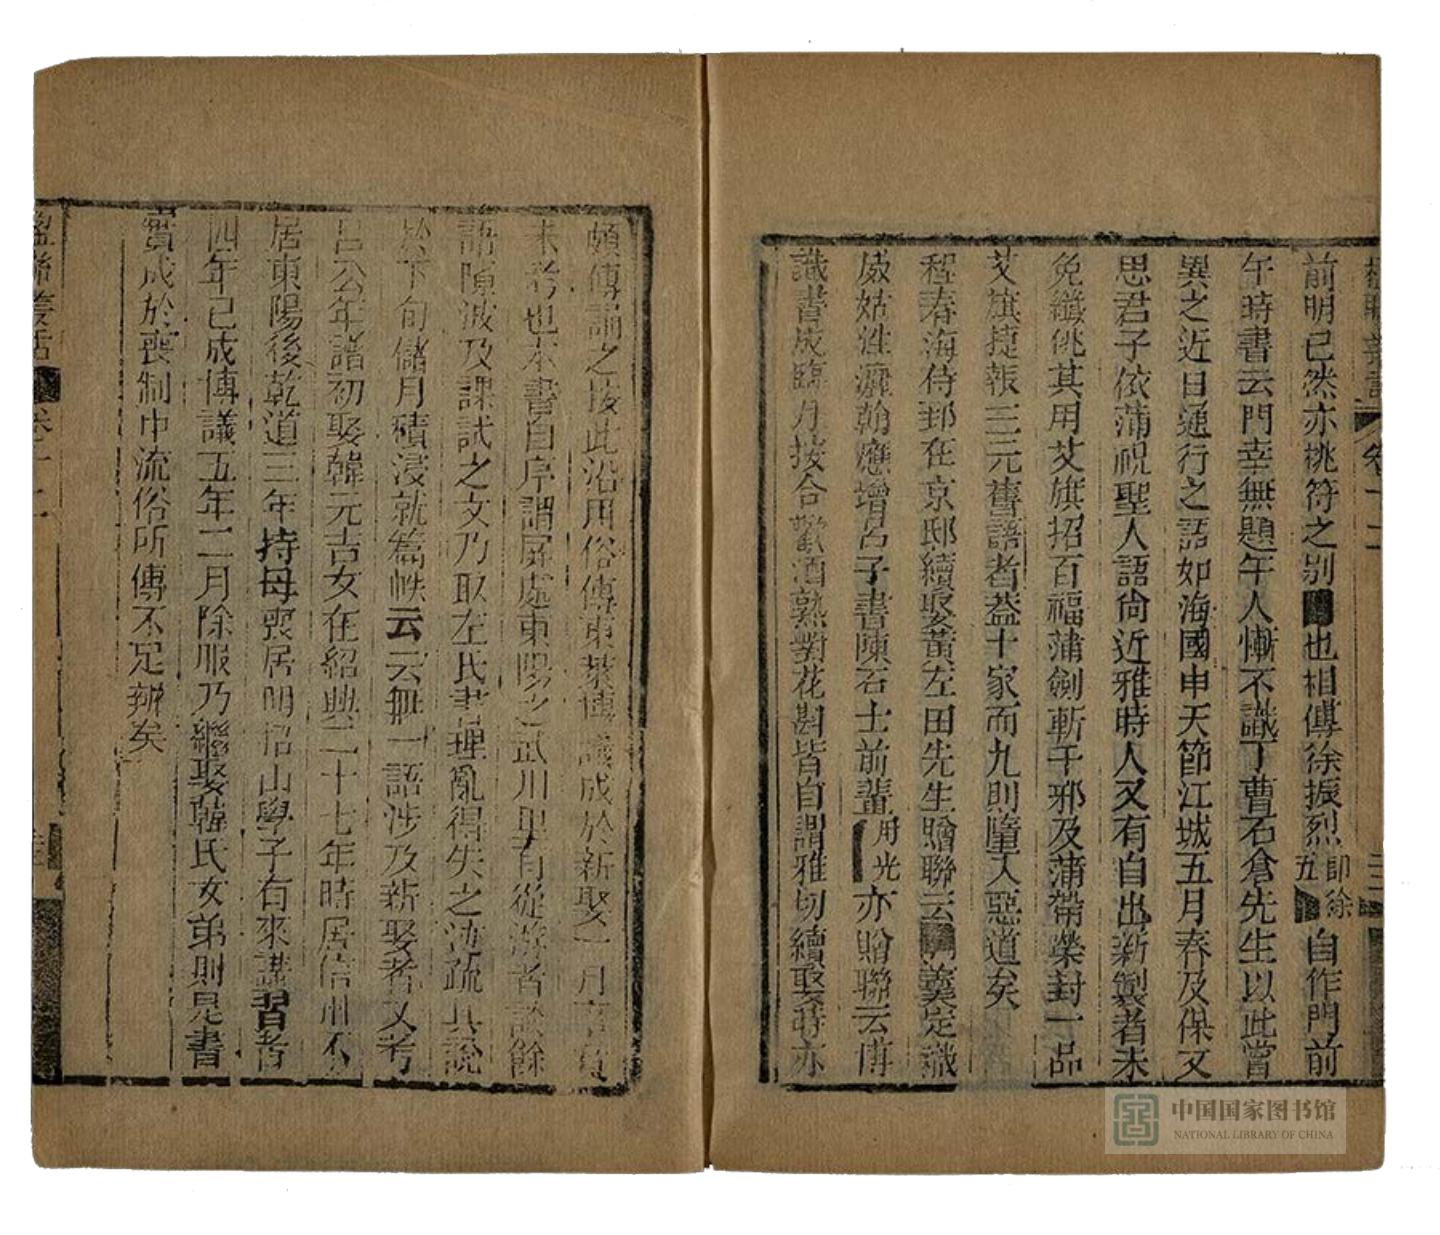 楹聯叢話 卷十二
前明已然亦桃符之別也相傳徐振烈即徐五自作門前
午時書云門幸無題午人慚不識丁曹石倉先生以此嘗
異之近日通行之語如海國申天節江城五月春及保艾
思君子依蒲祝聖人語尚近雅時人又有自出新製者未
免纖佻其用艾旗招百福蒲劍斬千邪及蒲帶榮封一品
艾旗捷報三元舊語者益十家而九則墮入惡道矣
程春海侍郎在京邸續娶黃左田先生贈聯云羹定識
威姑性瀚應增呂子書陳石士前輩用光亦贈聯云博
議書成臨月按合歡酒熟對花斟皆自謂雅切續娶時亦
頗傳誦之按此沿用俗傳東萊博議成於新娶一月
未考也本書自序謂屏處東陽之武川里有從游者談餘
語隙波及課試之文乃取左氏書理亂得失之迹疏其說
於下旬儲月積浸就篇帙云云無一語涉及新娶者又考
呂公年譜初娶韓元吉女在紹興二十七年時居信州不
居東陽後乾道三年持母喪居明招山學子有來講習者
四年已成博議五年二月除服乃繼娶韓氏女弟則是書
實成於喪制中流俗所傳不足辨矣
楹聯叢話 卷十二
中国国家图书馆
NATIONAL LIBRARY OF CHINA